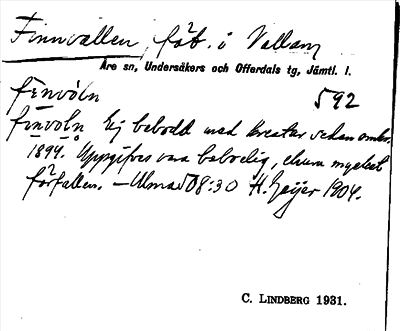 Finnvallen, fäb. i Vallam
Åre sn, Undersåkers och Offerdals tg, Jämtl. l.
fe̱nvɔ̀ln 592
fi̱nvo̱ln Ej bebodd med kreatur sedan omkr.
1894. Uppgifves vara beboelig, ehuru mycket
förfallen. – Ulma 508:30 H. Geijer 1904.
C. LINDBERG 1931.